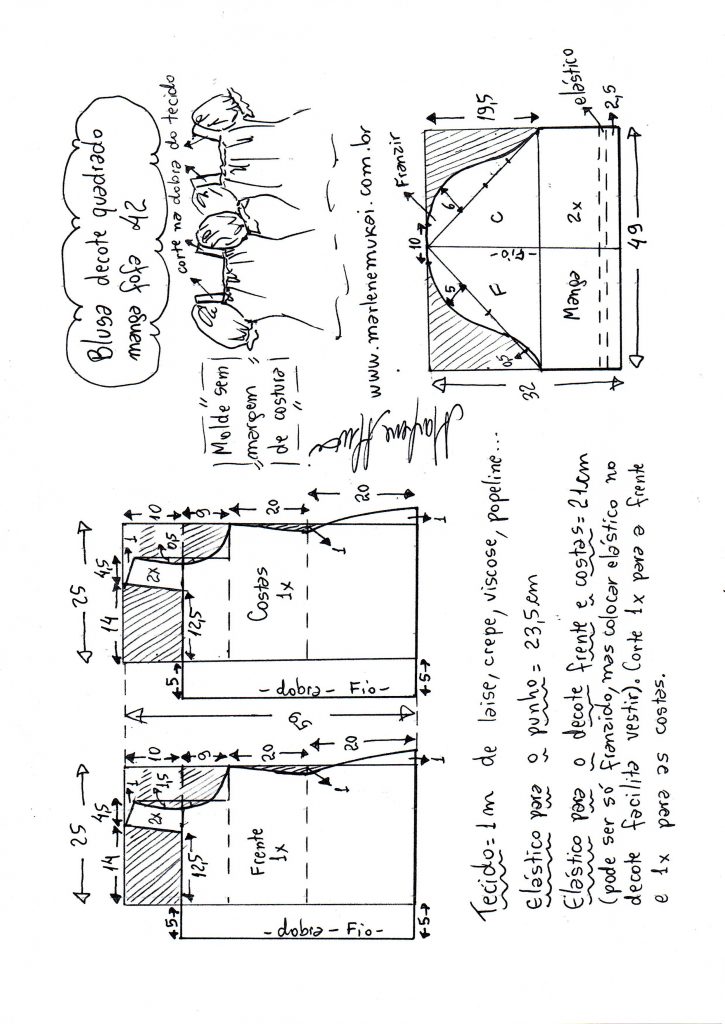 25
14
4,5
1
10
1,5
2x
9
12,5
Frente
1x
20
20
1
1
5
5
-dobra-Fio-
59
25
14
4,5
1
10
0,5
2x
9
12,5
Costas
1x
20
20
1
1
5
5
-dobra-Fio-
"Molde sem
"margem"
de costura
Blusa decote quadrado
manga fofa 42
corte na dobra do tecido
www.marlenemukai.com.br
Franzir
10
19,5
32
5
6
0,5
F
C
-Fio-
Manga
2x
elástico
2,5
49
Tecido=1m de laise, crepe, viscose, popeline...
Elástico para o punho = 23,5cm
Elástico para o decote frente e costas=21cm
(pode ser só franzido, mas colocar elástico no
decote facilita vestir). Corte 1x para a frente
e 1x para as costas.